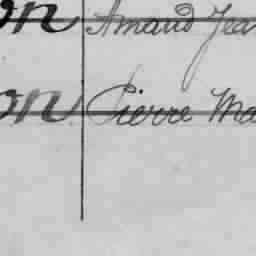 on Amand Jea
on Pierre Ma